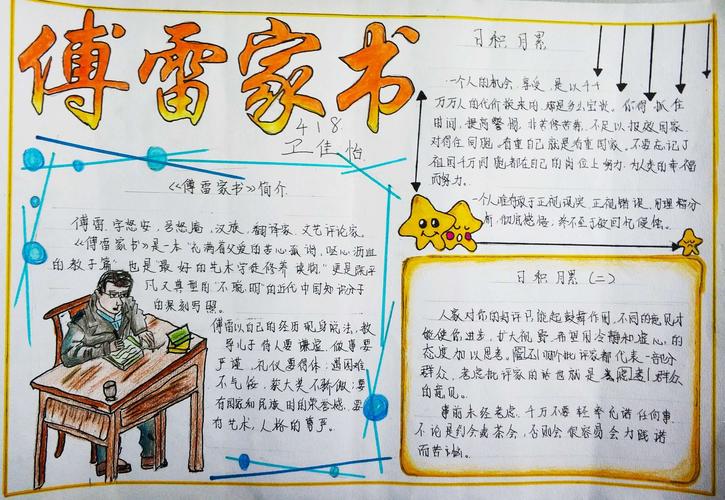 傅雷家书
418
卫佳怡
《傅雷家书》简介
傅雷,字怒安,号怒庵,汉族,翻译家,文艺评论家。
《傅雷家书》是一本“充满着父爱的苦心孤诣,呕心沥血
的教子篇”也是“最好的艺术学徒修养读物”更是
凡又典型的“不聪明”的近代中国知识分子
的深刻写照。
傅雷以自己的经历现身说法,教
导儿子待人要谦虚,做事要
严谨,礼仪要得体;遇困难
不气馁,获大奖不骄傲;要
有国家和民族的荣辱感,要
有艺术,人格的尊严。
日积月累
一个人的机会,享受,是以千千
万万人的代价换来的,那是多么宝贵。你得抓住
时间,提高警惕,非苦修苦练,不足以报效国家,
对得住同胞。看重自己就是看重国家。不要忘记了
祖国千万同胞都在自己的岗位上努力,为人类的幸福
而努力。
一个人唯有敢于正视现实,正视错误,用理智分
析,彻底感悟,终不至于被回忆侵蚀。
日积月累(二)
人家对你的好评只能起鼓舞作用,不同的意见才
能使你进步,扩大视野,希望用冷静和虚心的
态度加以思考。不管哪个批评家都代表一部分
群众,考虑批评家的话也就是考虑群众
的意见。
事前未经考虑,千万不要轻率允诺任何事,
不论是约会或茶会,否则会很容易会为践诺
而苦恼。